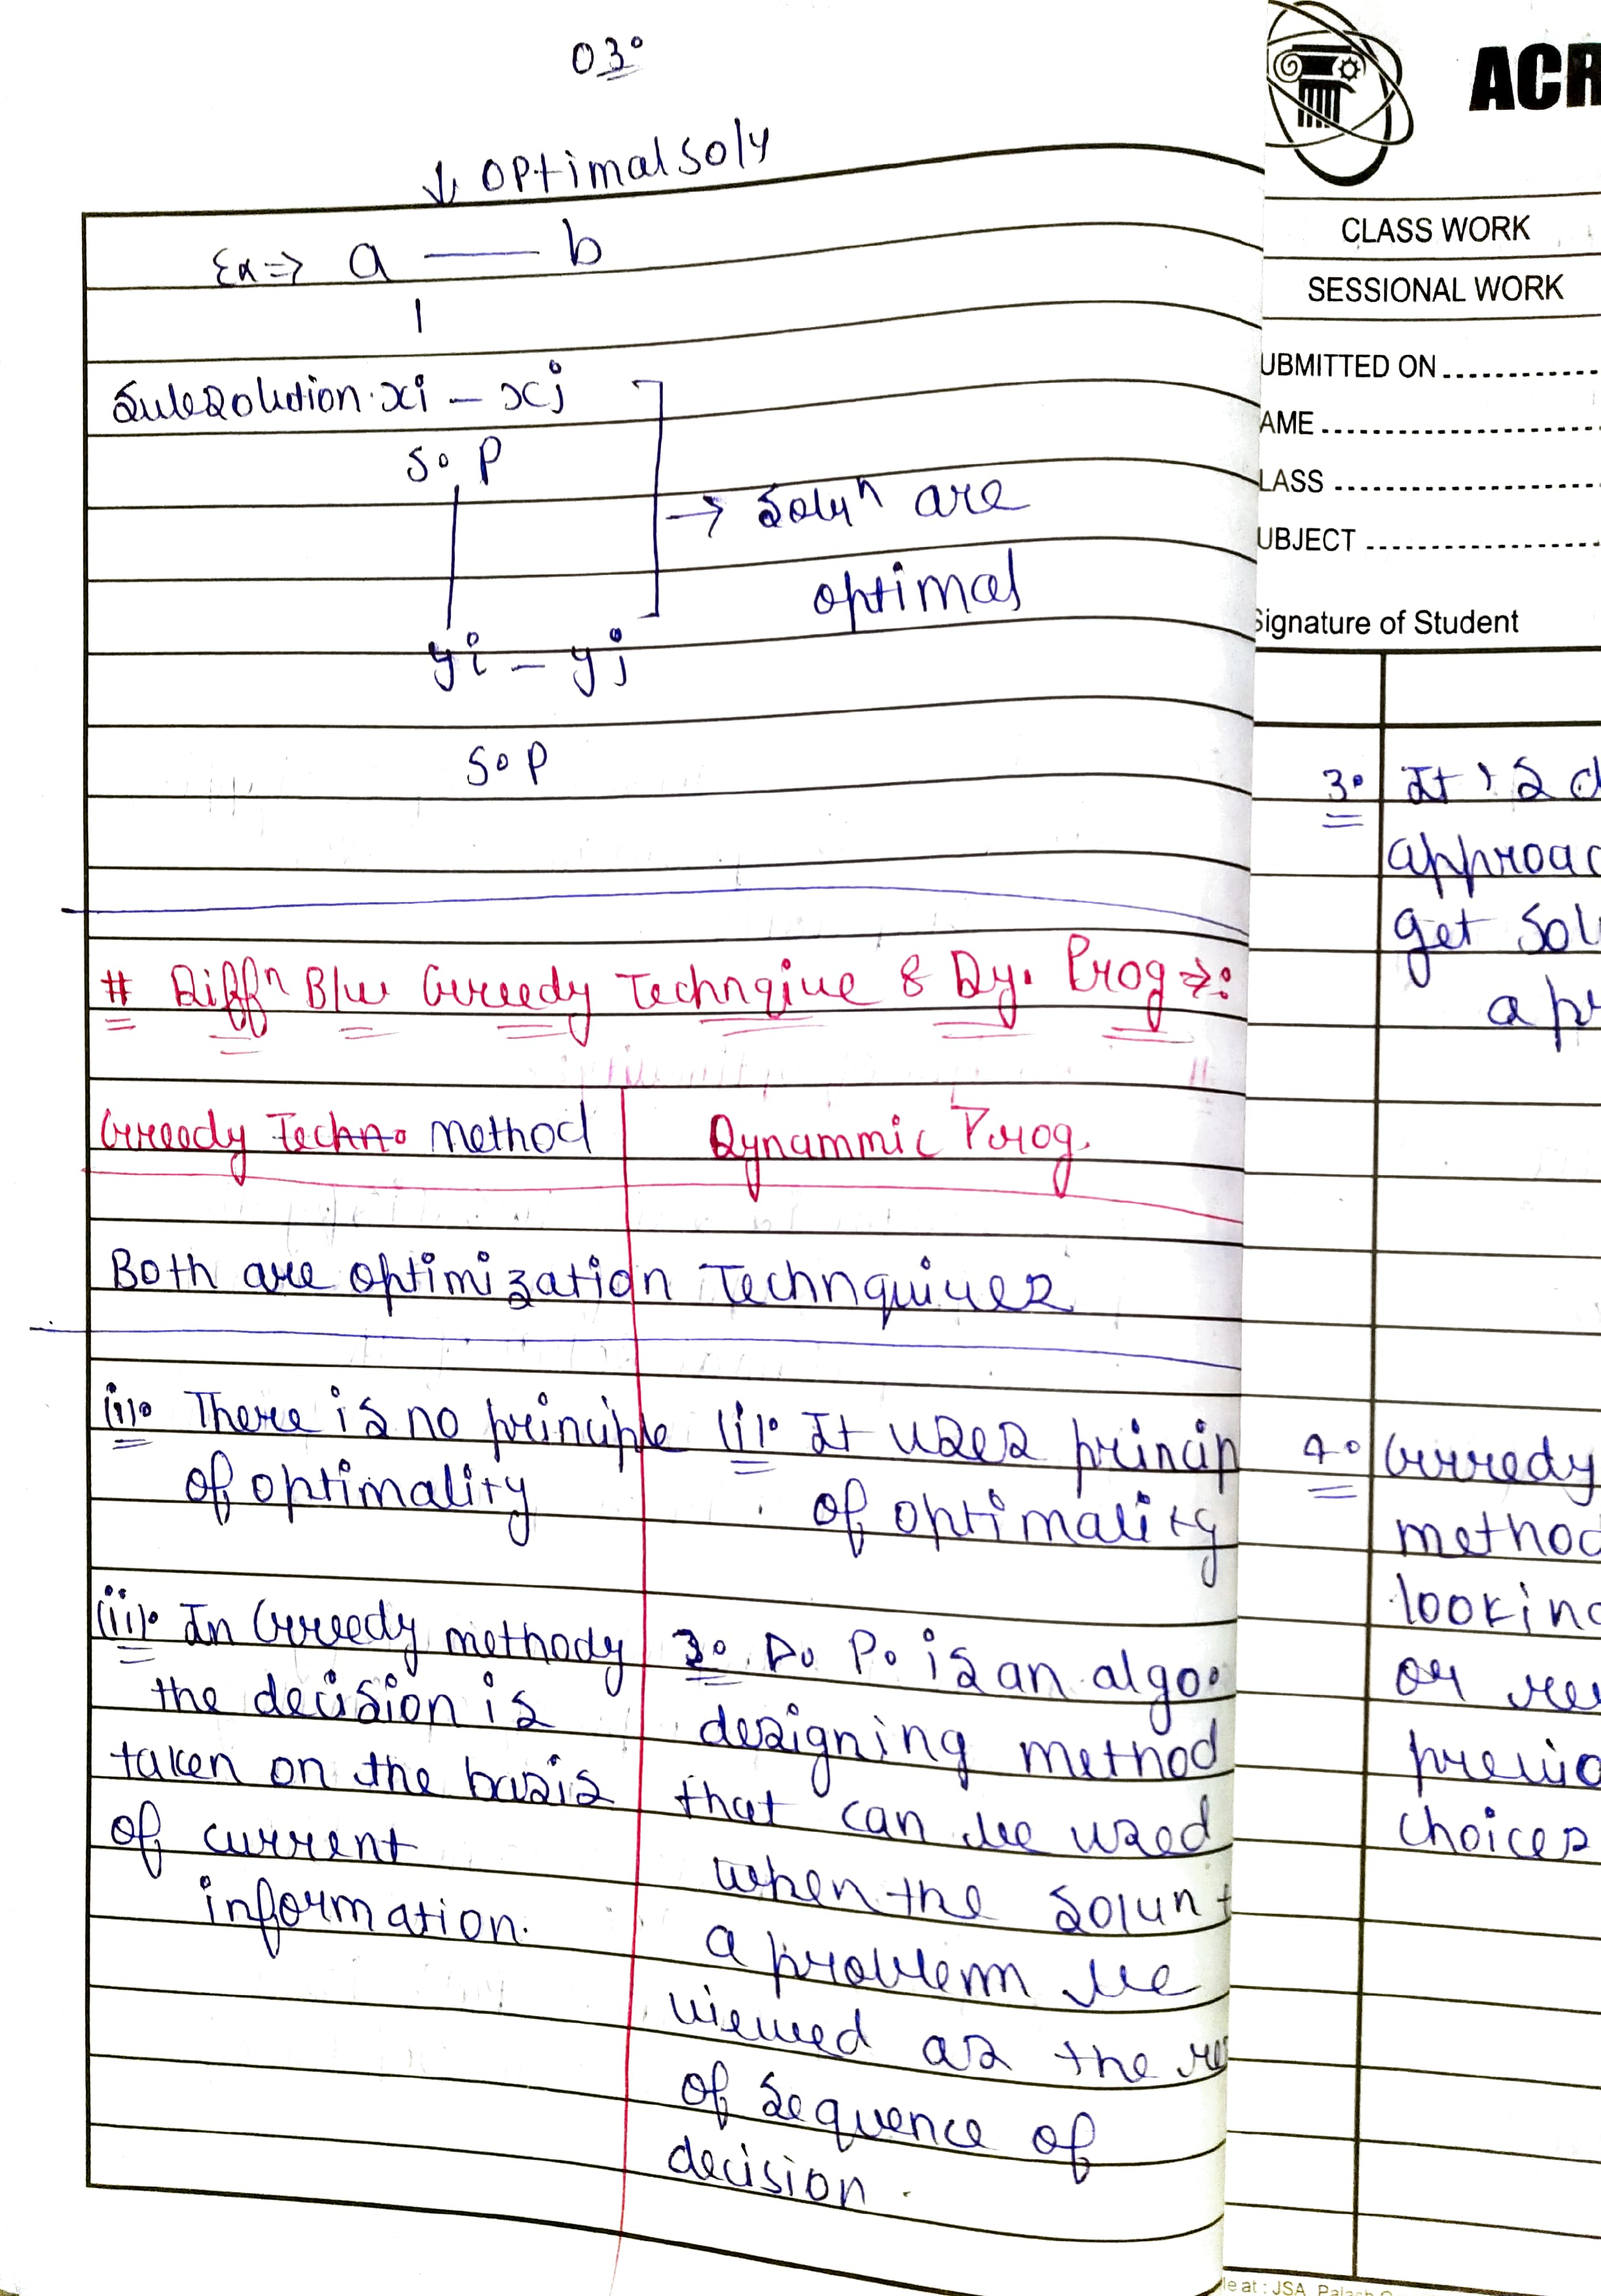 03.
↓ optimal soly
Ex ⇒ a — b
Subsolution xi – xj
S.P
→ Solyⁿ are
optimal
yi – yj
S.P
# Diffⁿ B/w Greedy Technqiue & Dy. Prog ⇒:
Greedy Techn. method
Dynammic Prog.
Both are optimization Technquiues
(i). There is no principle
of optimality
(i). It uses princip
of optimality
(ii). In Greedy methody
the decision is
taken on the basis
of current
information.
2. D. P. is an algo.
designing method
that can be used
when the solun t
a problem be
viewed as the re
of sequence of
decision.
ACR
CLASS WORK
SESSIONAL WORK
UBMITTED ON
AME
LASS
UBJECT
Signature of Student
3. It's a d
approac
get sol
a pr
4. Greedy
method
looking
or re
previo
choices
le at : JSA, Palash